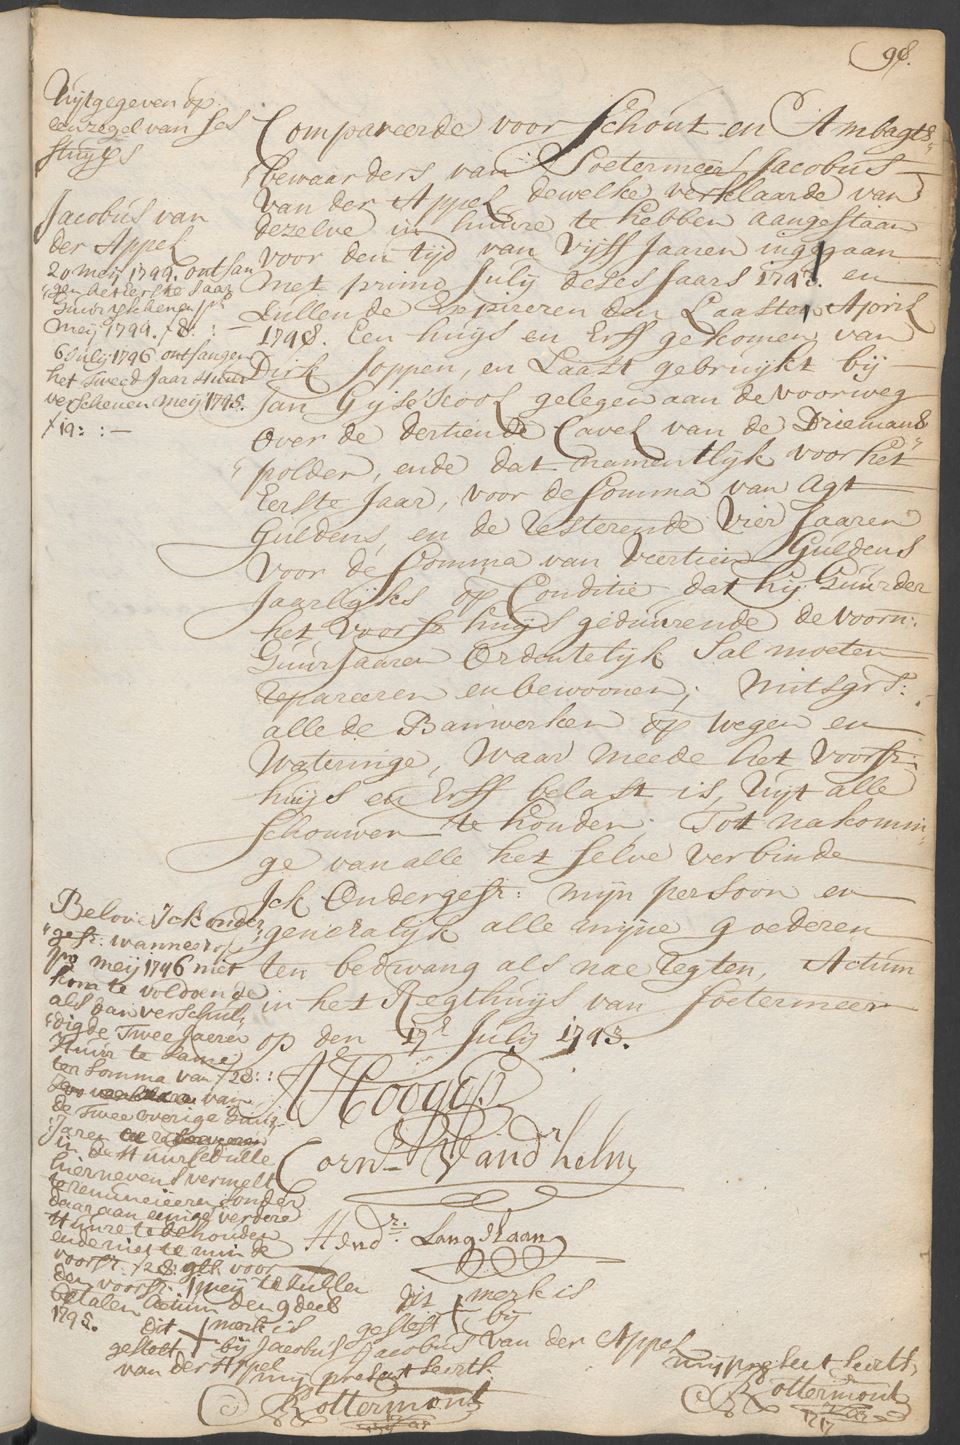 98.
Uijtgegeven op
een zegel van ses
stuijv's
Jacobus van
der Appel
20 meij 1794. ontfan
gen het Eerste Jaar
huur verschenen pr.
Meij 1794. ƒ8: : —
6 Julij 1796 ontfangen
het tweed Jaar Huur
verschenen meij 1795.
ƒ14: : —
Compareerde voor Schout en Ambagts
bewaarders van Soetermeer Jacobus
van der Appel, dewelke verklaarde van
dezelve in huure te hebben aangestaan
voor den tijd van Vijff Jaaren ingegaan
met primo Julij deses Jaars 1793. en
sullende Expireren den Laasten April
1798. Een huijs en Erff gekomen van
Dirk Joppen, en Laast gebruijkt bij
Jan Gijse Kool gelegen aan de voorweg
over de dertiende Cavel van de Driemans
polder, ende dat namentlijk voor het
Eerste Jaar, voor de Somma van Agt
Guldens, en de resterende Vier Jaaren
voor de Somma van Veertien Guldens
Jaarlijks op Conditie dat hij Huurder
het voorsz huijs geduurende de voorn:
Huurjaaren Ordentelijk Sal moeten
repareeren en bewoonen; mitsgrs:
alle de Bauwerken op wegen en
Wateringe, waar meede het voorsz:
huijs en Erff belast is, Uijt alle
Schouwen te houden; Tot nakomin
ge van alle het selve verbinde
Ick Ondergesz: mijn persoon en
generalijk alle mijne goederen
ten bedwang als nae regten, Actum
in het Regthuijs van Soetermeer
op den 17e Julij 1793.
Corn Vand helm
Hendr: Langelaan
dit merk is
gestelt + bij
Jacobus van der Appel
mij present Secrts.
Rottermont
Belove Ick onder
gesz: wanneer op
po meij 1796 niet
kom te voldoen de
als dan verschul
digde Twee Jaaren
Huur te samen
ter Somma van ƒ28: :
van
de Twee overige huur
Jaren
in de Huurcedulle
hiernevens vermelt
te renuncieeren sonder
daar aan eenige verdere
Huure te behouden
ende niet te min de
voorsz. ƒ28: voor
den voorsz. 1 meij te sullen
betalen Actum den 9 decb
1795.
dit merk is
gestelt + bij Jacobus
van der Appel
mij present Secrts.
Rottermont